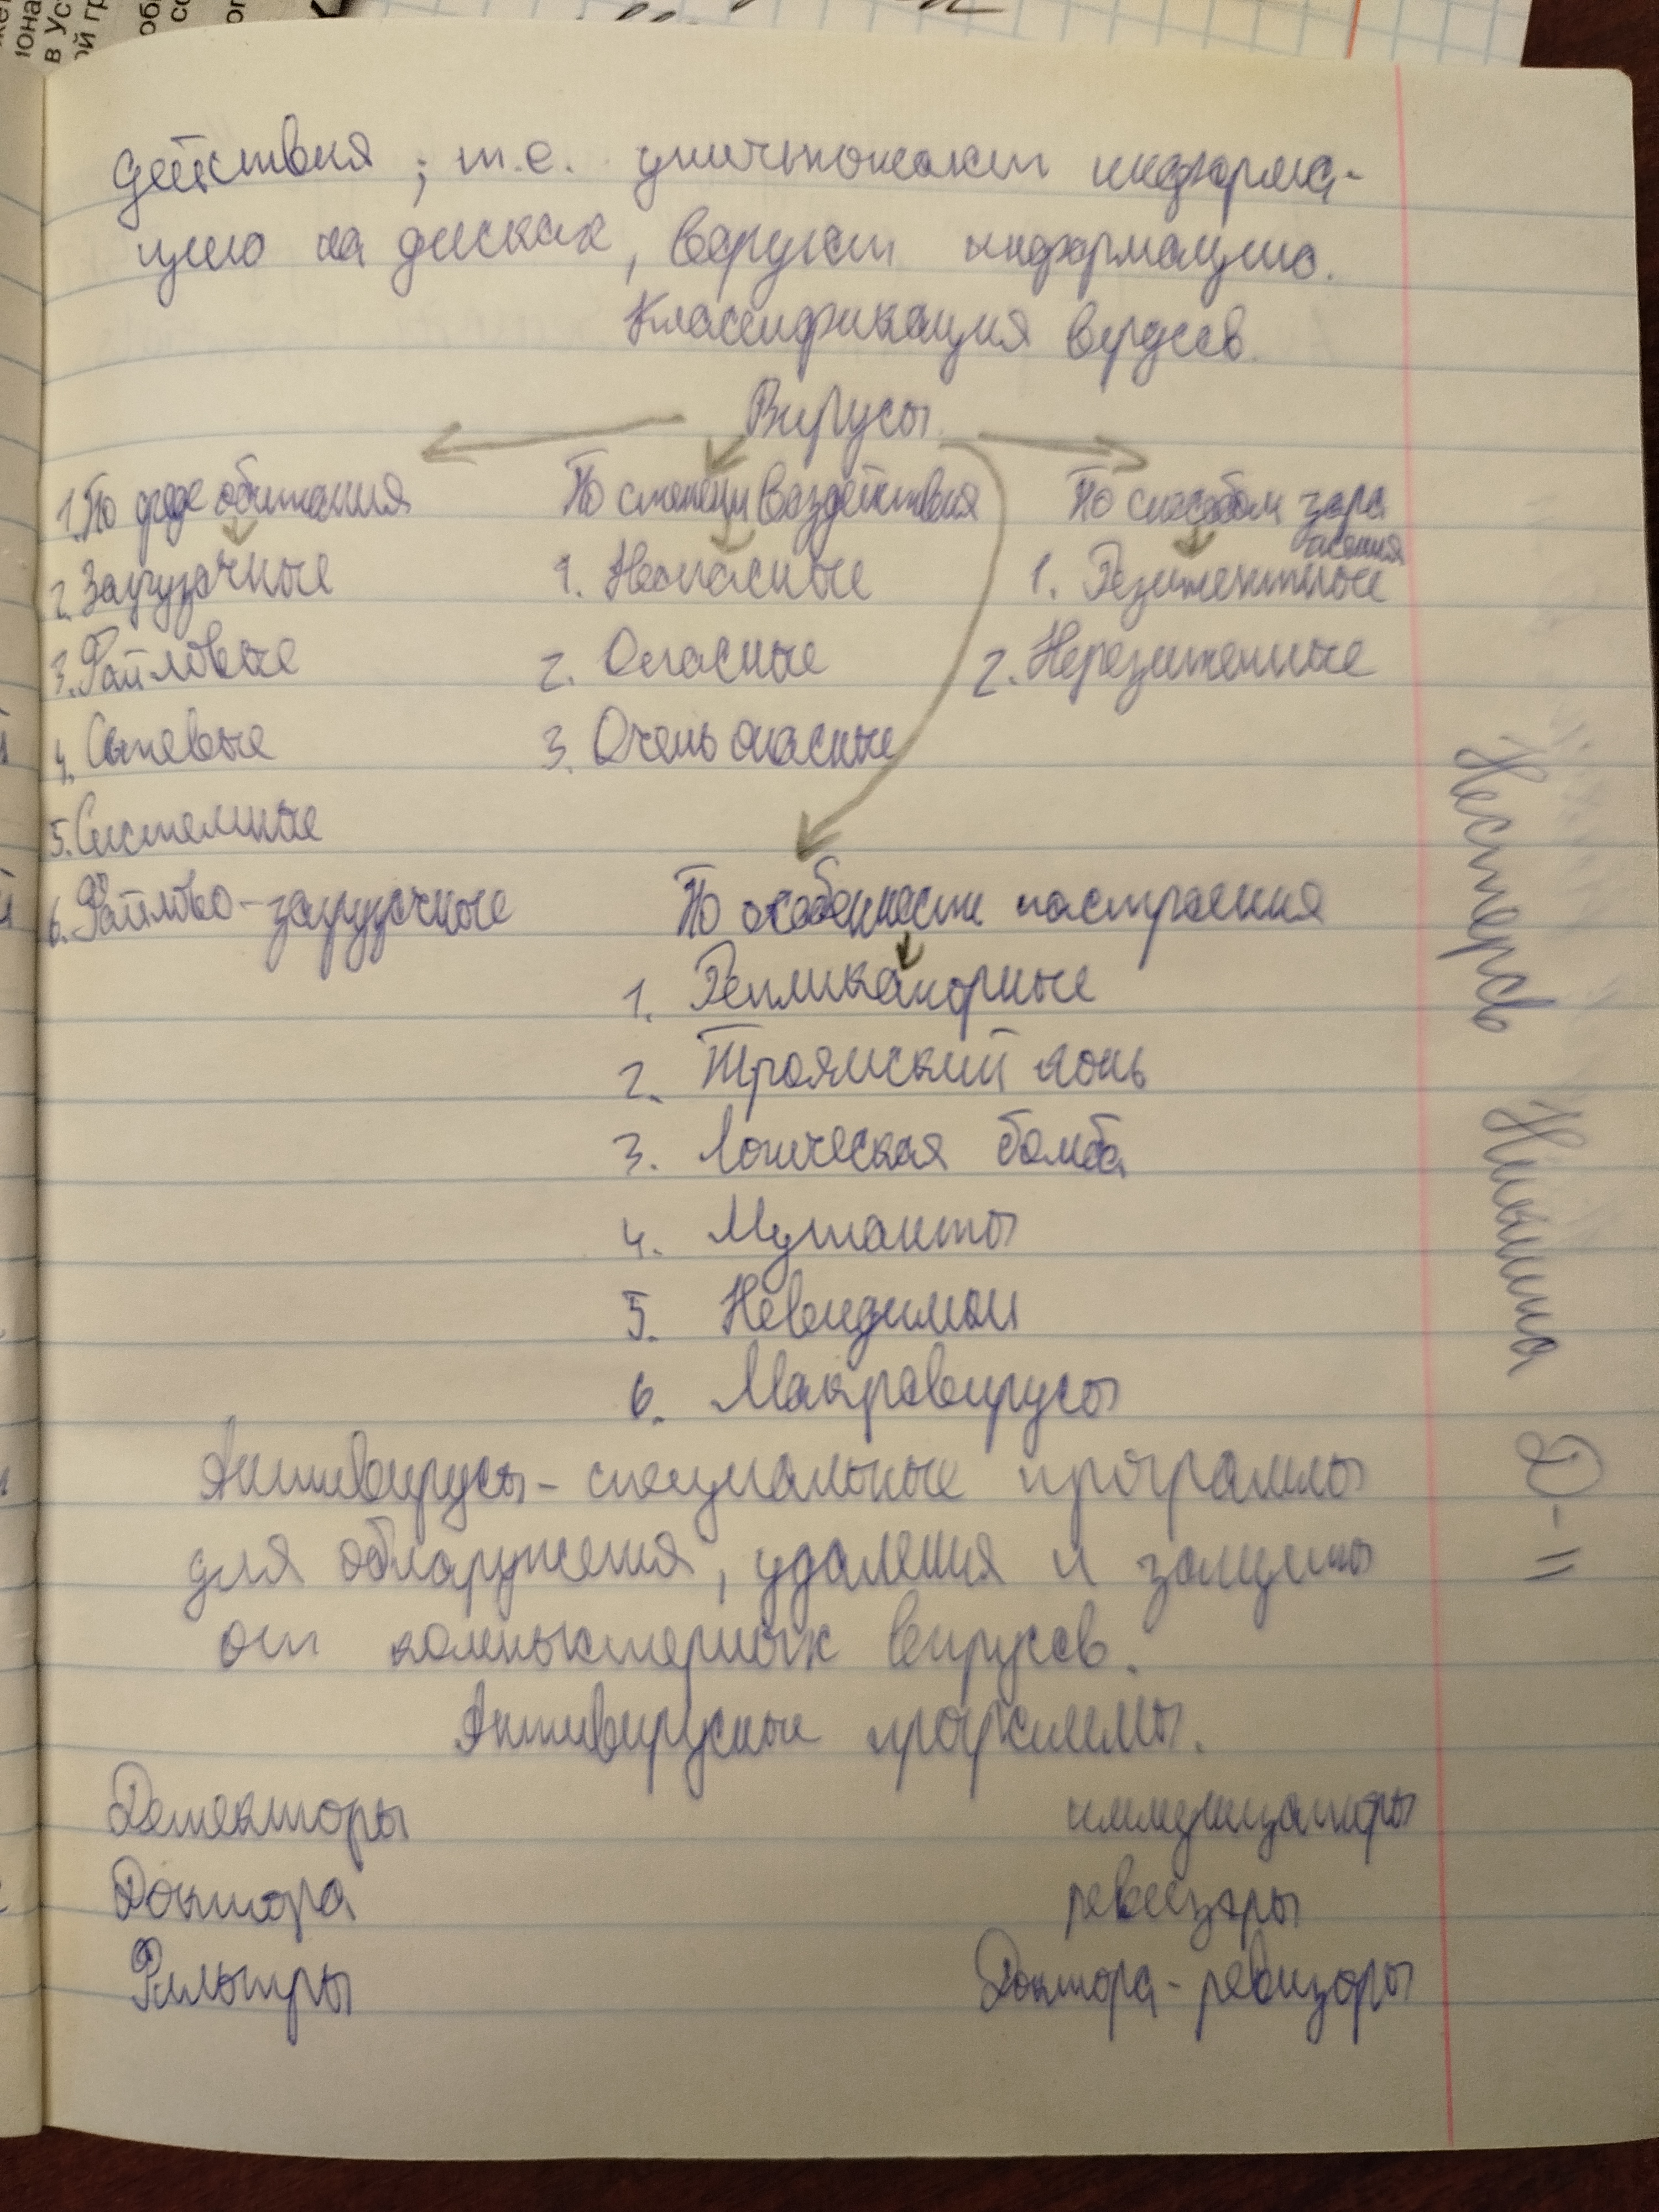 действия; т.е. уничтожает информа-
цию на дисках, варует информацию.
Классификация вирусов.
Вирусы
1. По среде обитания
2. Загрузочные
3. Файловые
4. Сетевые
5. Системные
6. Файлово-загрузочные
По степени воздействия
1. Неопасные
2. Опасные
3. Очень опасные
По способом зара
жения
1. Резидентные
2. Нерезиденные
По особенности построения
1. Репликаторные
2. Троямский конь
3. Логическая бомба
4. Мутанты
5. Невидимки
6. Макровирусы
Антивирусы - специальные программы
для обнаружения, удаления и защиты
от компьютерных вирусов.
Антивирусные программы.
Детекторы
Доктора
Фильтры
иммунизаторы
ревизоры
Доктора - ревизоры
Нестеров
Никита
Д-11